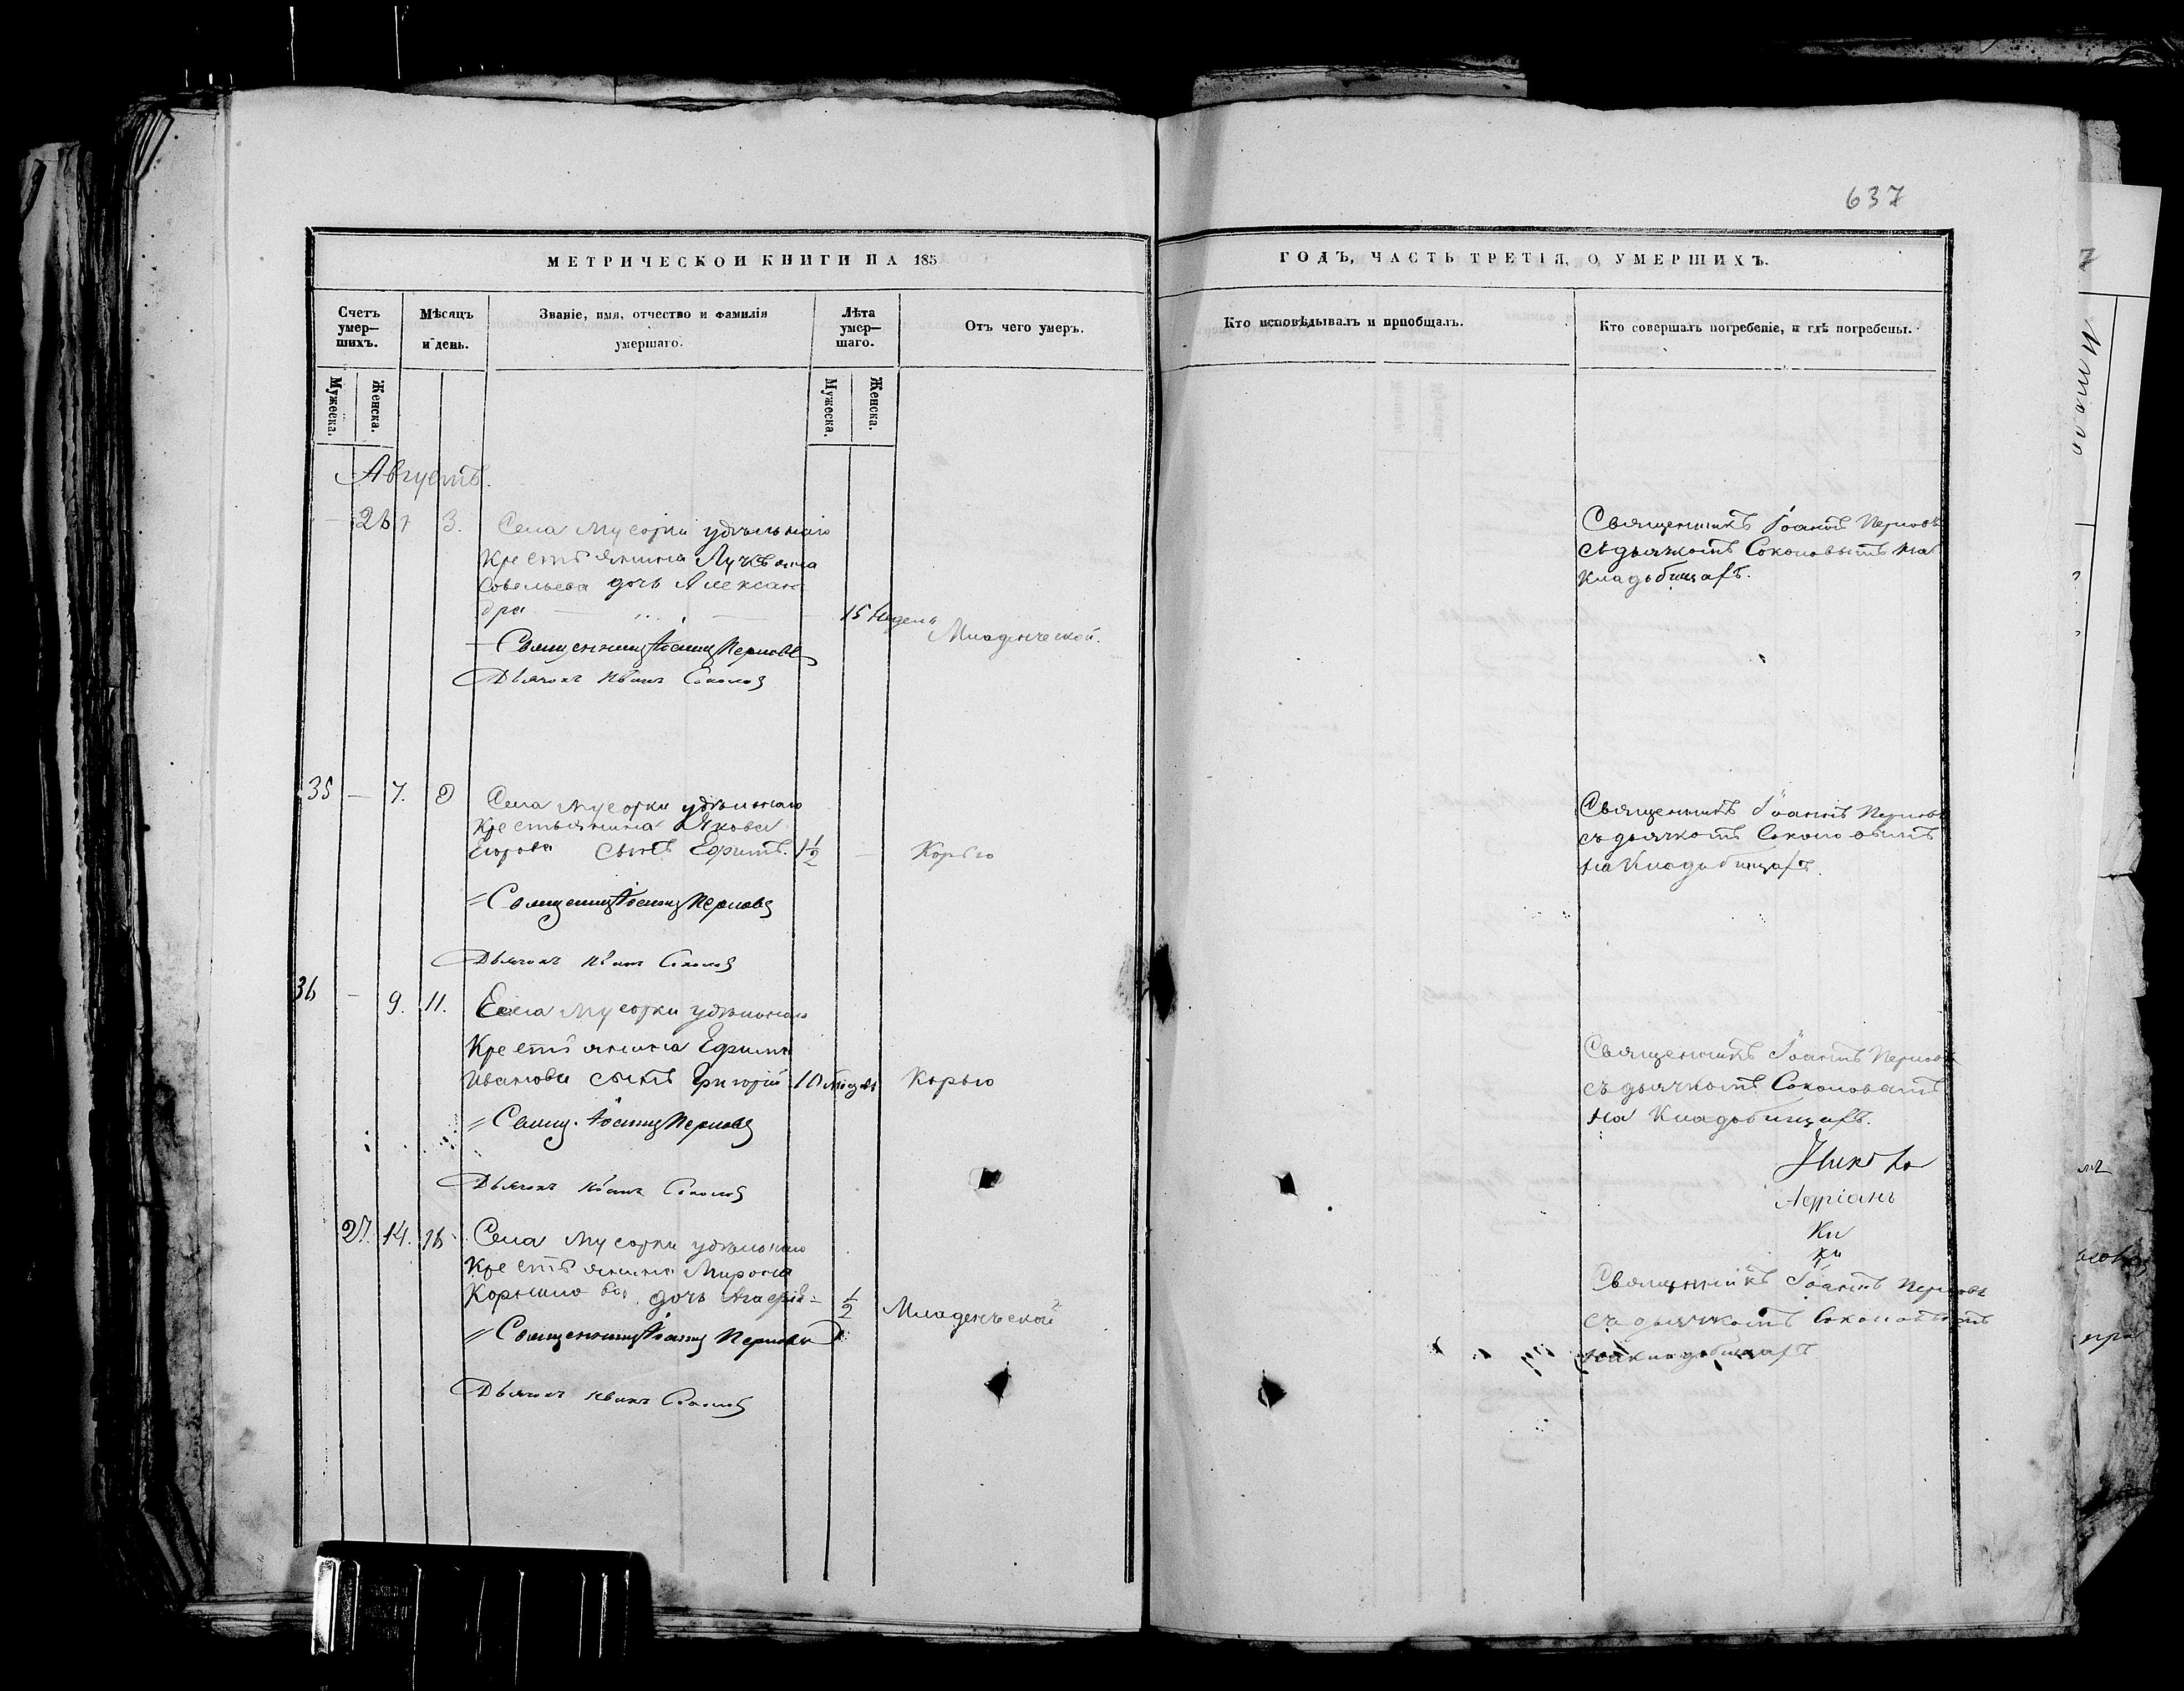 637
МЕТРИЧЕСКОЙ КНИГИ НА 185
ГОДЪ, ЧАСТЬ ТРЕТІЯ, О УМЕРШИХЪ.
Счетъ умер-
шихъ.
Мѣсяцъ
и день.
Званіе, имя, отчество и фамилія
умершаго.
Лѣта
умер-
шаго.
Отъ чего умеръ.
Кто исповѣдывалъ и пріобщалъ.
Кто совершалъ погребеніе, и гдѣ погребены.
Мужеска.
Женска.
Мужеска.
Женска.
Августъ.
26 3. Села Мусорки удѣльнаго
Крестьянина
Савельева дочь Алексан
дра 15 недель
Младенческой.
Священникъ Іоаннъ Перновъ
Дьячокъ Иванъ Соколовъ
Священникъ Іоаннъ Перновъ
съ дьячкомъ Соколовымъ на
Кладбищахъ.
35 — 7. 9 Села Мусорки удѣльнаго
Крестьянина Якова
Егорова сынъ Ефимъ. 1½ — Корью
Священникъ Іоаннъ Перновъ
Дьячокъ Иванъ Соколовъ
Священникъ Іоаннъ Перновъ
съ дьячкомъ Соколовымъ
на Кладбищахъ.
36 — 9. 11. Села Мусорки удѣльнаго
Крестьянина Ефима
Иванова сынъ Григорій 10 месяцъ Корью
Свящ. Іоаннъ Перновъ
Дьячокъ Иванъ Соколовъ
Священникъ Іоаннъ Перновъ
съ дьячкомъ Соколовымъ
на Кладбищахъ.
Адріанъ
Ки
Ки
27. 14. 16 Села Мусорки удѣльнаго
Крестьянина Мирона
Корнилова дочь ½ Младенческой
Священникъ Іоаннъ Перновъ
Дьячокъ Иванъ Соколовъ
Священникъ Іоаннъ Перновъ
съ дьячкомъ Соколовымъ
на кладбищахъ